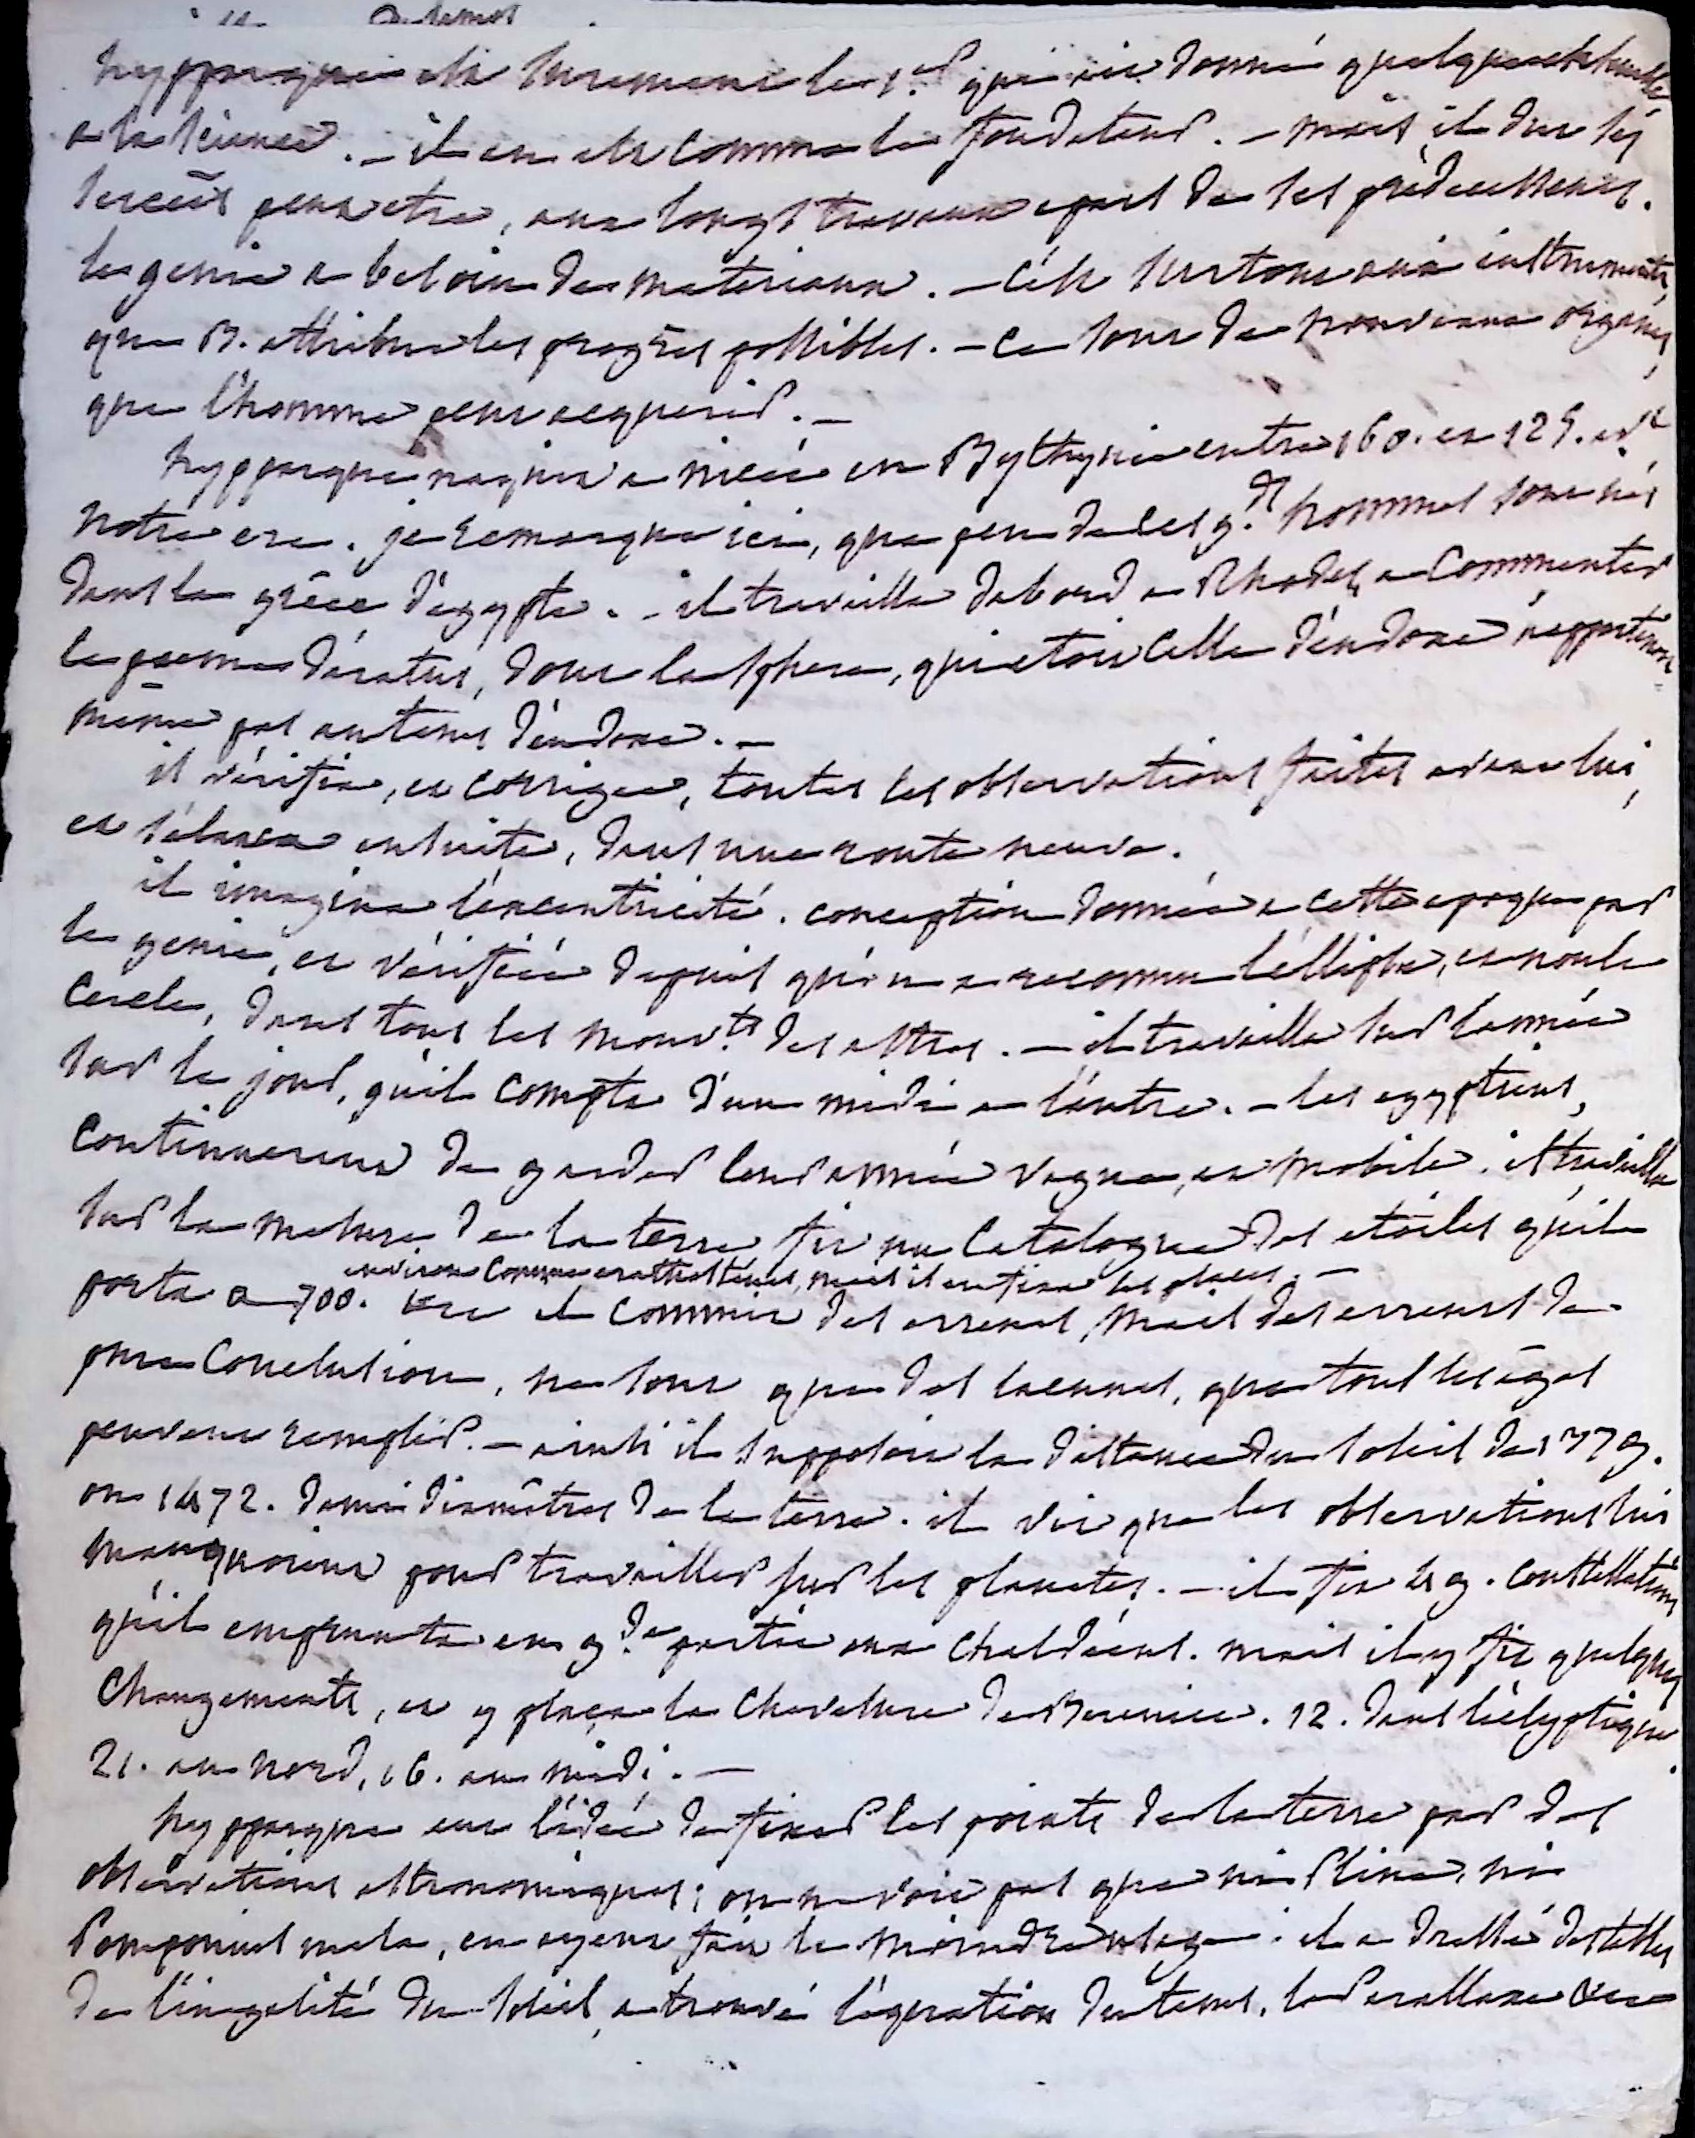 hypparque est surement le 1.er qui ait donné quelque
a la science. – il en est comme le fondateur. – mais il dut ses
succès peut etre, aux longs travaux epars de ses prédécesseurs.
le genie a besoin de materiaux. – c'est surtout aux instruments,
que B. attribue les progrès possibles. – ce sont de nouveaux organes,
que l'homme peut acquerir. –
hypparque naquit a nicée en Bythynie entre 160. et 125. av.t
notre ere. je remarque ici, que peu de ces g.ds hommes sont nés
dans la grèce d'egypte. – il travailla d'abord a Rhodes, a commenter
le poeme d'aratus, dont la sphere, qui etoit celle d'eudoxe n'appartenoit
même pas au tems d'eudoxe. –
il vérifia, et corrigea, toutes les observations faites avant lui,
et s'élança ensuite, dans une route neuve.
il imagina l'excentricité. conception donnée a cette epoque par
le genie, et vérifiée depuis qu'on a reconnu l'éllipse, et non le
cercle, dans tous les mouv.ts des astres. – il travailla sur l'année
sur le jour, qu'il compta d'un midi a l'autre. – les egyptiens,
continuerent de garder leur année vague, et mobile. il travailla
sur la mesure de la terre fit un catalogue des etoiles qu'il
environ comme erathostènes, mais il en fixa les places. –
porta a 700. il commit des erreurs, mais des erreurs de
pure conclusion, ne sont que des lacunes, que tous les ages
peuvent remplir. – ainsi il supposoit la distance du soleil de 1379.
ou 1472. demi diamêtres de la terre. il vit que les observations lui
manquoient pour travailler sur les planetes. – il fit 49. constellations
qu'il emprunta en g.de partie aux chaldéens. mais il y fit quelques
changements, et y plaça la chevelure de Berenice. 12. dans l'éclyptique.
21. au nord, 16. au midi. –
hypparque eut l'idée de fixer les points de la terre par des
observations astronomiques; on ne voit pas que ni Pline, ni
Pomponius mela, en ayent fait le moindre usage. il a dressé des tables
de l'inégalité du soleil, a trouvé l'équation du tems, la Parallaxe &c